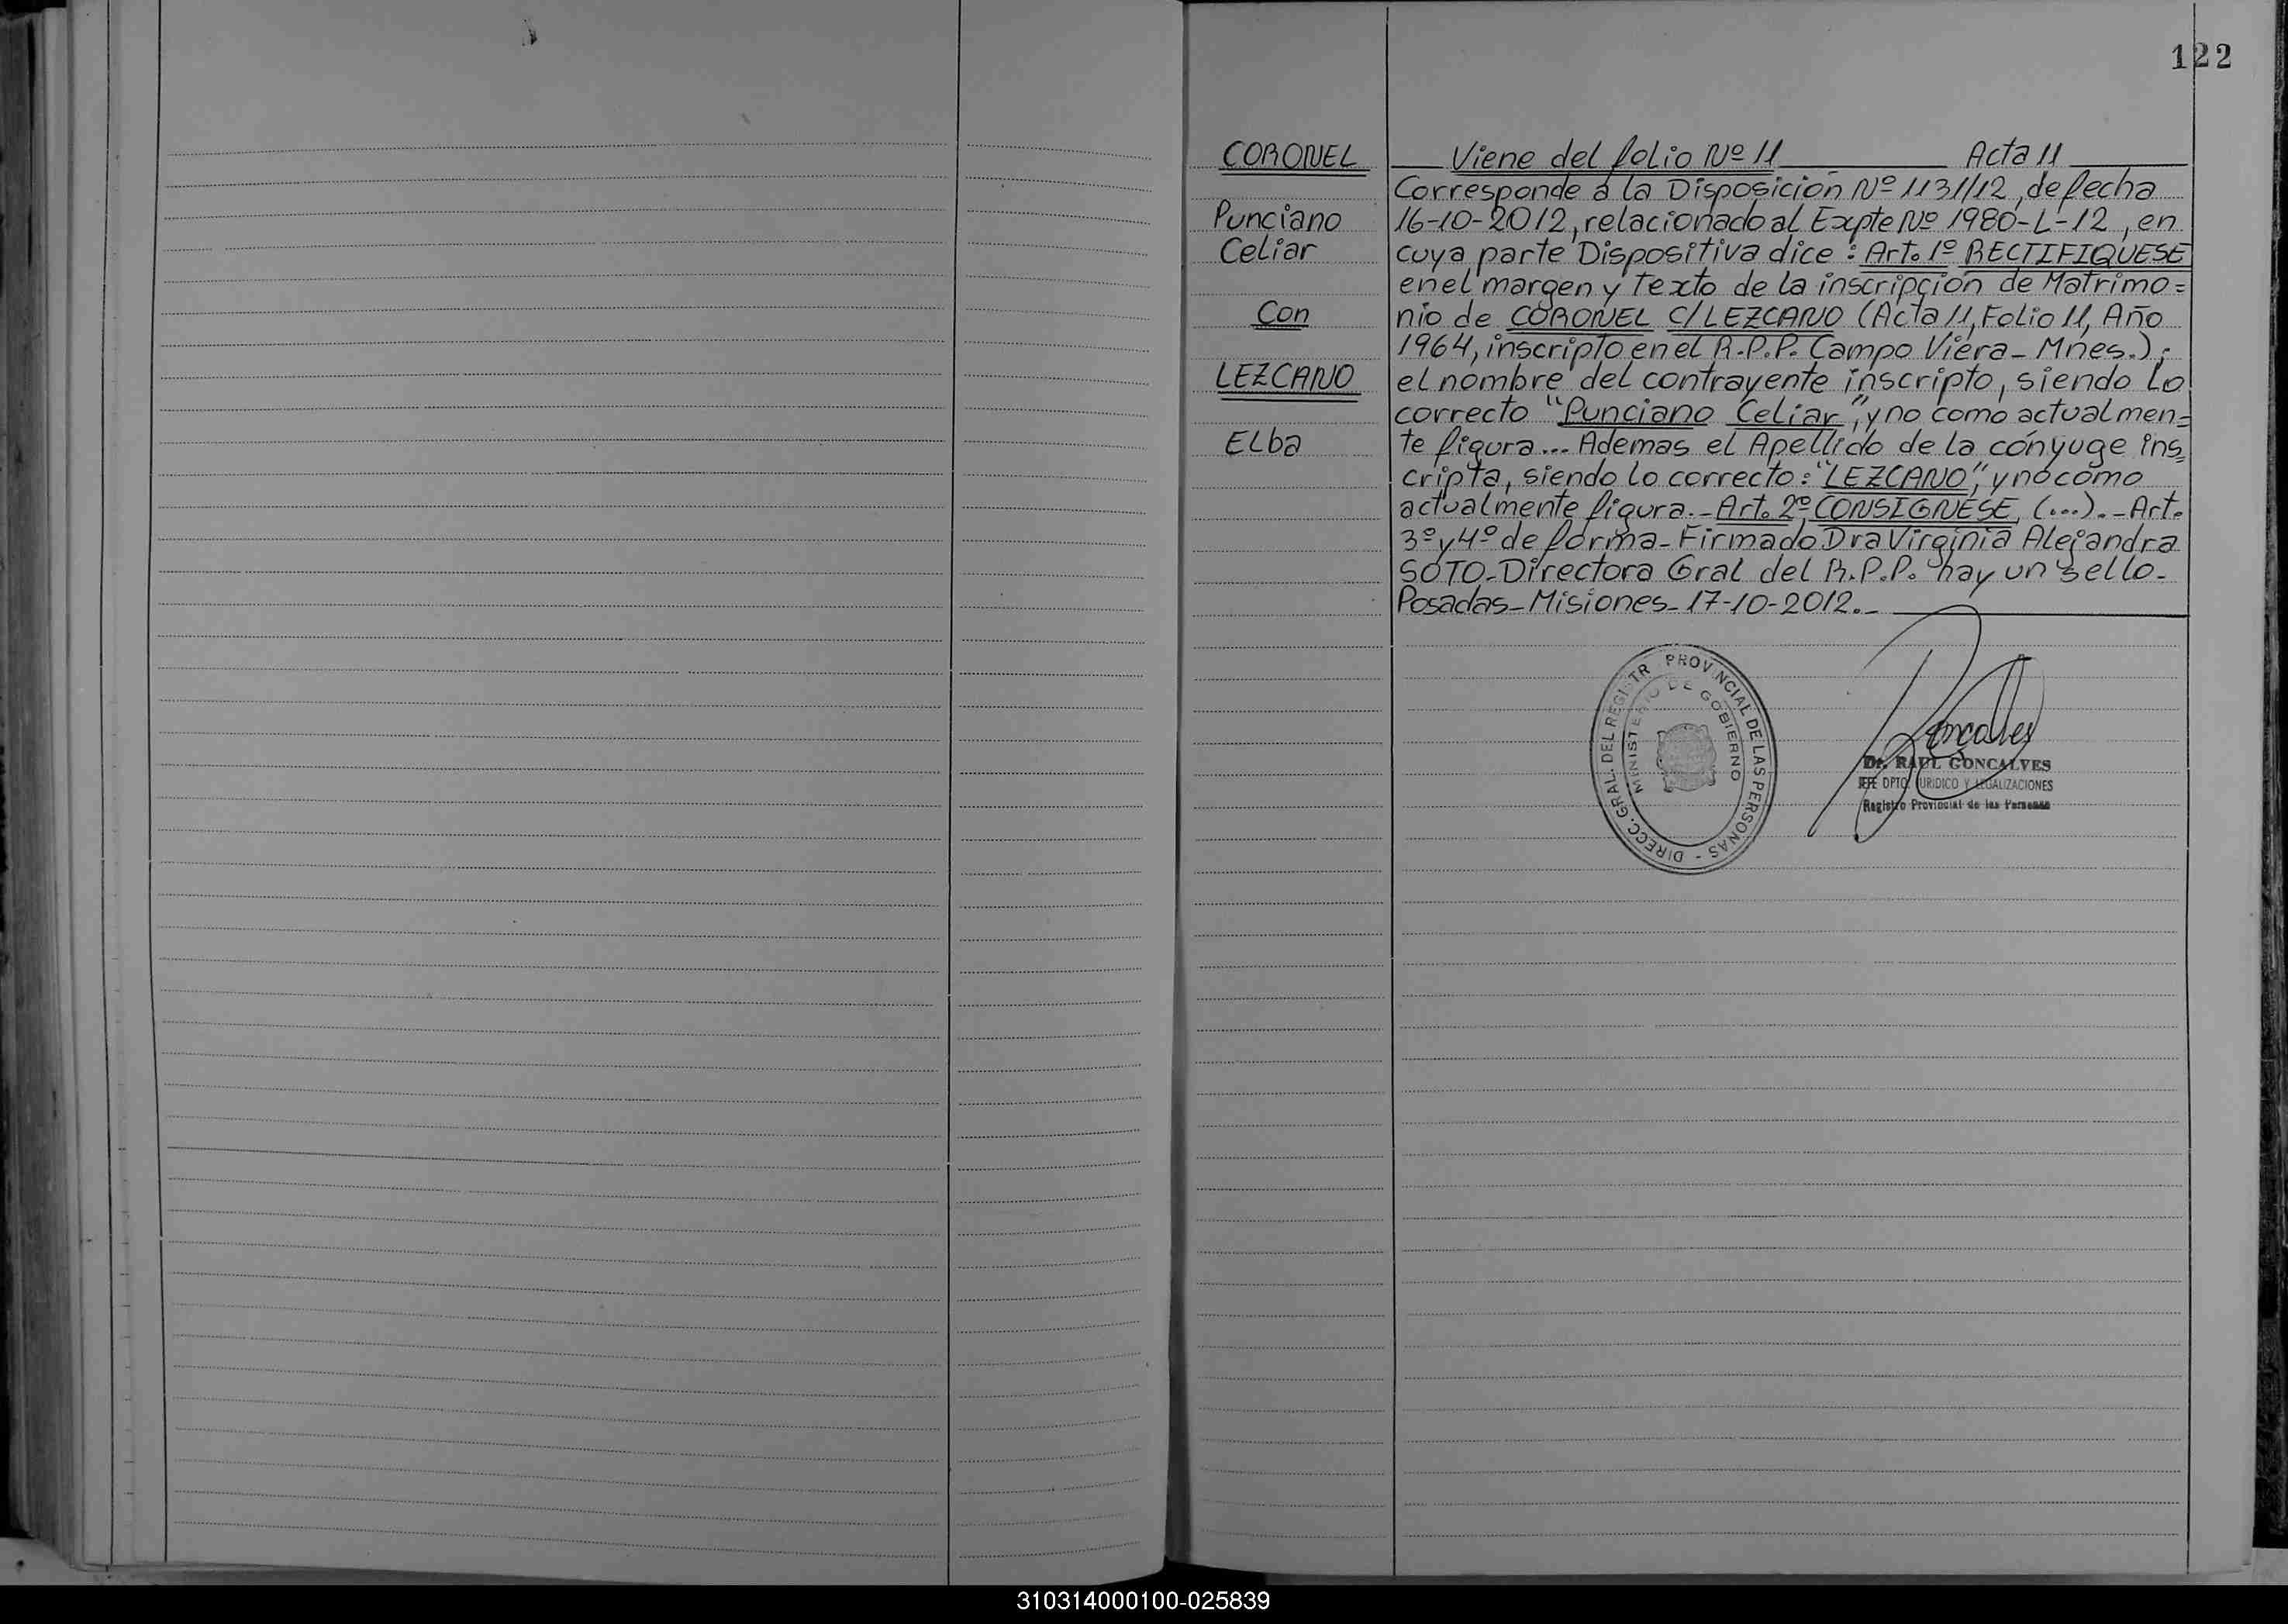 122
CORONEL
Punciano
Celiar
Con
LEZCANO
Elba
Viene del folio Nº 11 Acta 11
Corresponde a la Disposición Nº 1131/12, de fecha
16-10-2012, relacionado al Expte Nº 1980-L-12, en
cuya parte Dispositiva dice: Art. 1º RECTIFIQUESE
en el margen y Texto de la inscripción de Matrimo=
nio de CORONEL C/LEZCANO (Acta 11, Folio 11, Año
1964, inscripto en el R.P.P. Campo Viera - Mnes.);
el nombre del contrayente inscripto, siendo lo
correcto "Punciano Celiar", y no como actualmen=
te figura... Ademas el Apellido de la cónyuge ins=
cripta, siendo lo correcto: "LEZCANO", y no como
actualmente figura.- Art. 2º CONSIGNESE, (...).- Art.
3º y 4º de forma - Firmado Dra Virginia Alejandra
SOTO - Directora Gral del R.P.P. hay un sello -
Posadas - Misiones - 17-10-2012.-
DIRECC. GRAL. DEL REGISTR PROVINCIAL DE LAS PERSONAS -
MINISTERIO DE GOBIERNO
Goncalves
Dr. RAUL GONCALVES
JEFE DPTO. JURIDICO Y LEGALIZACIONES
Registro Provincial de las Personas
310314000100-025839